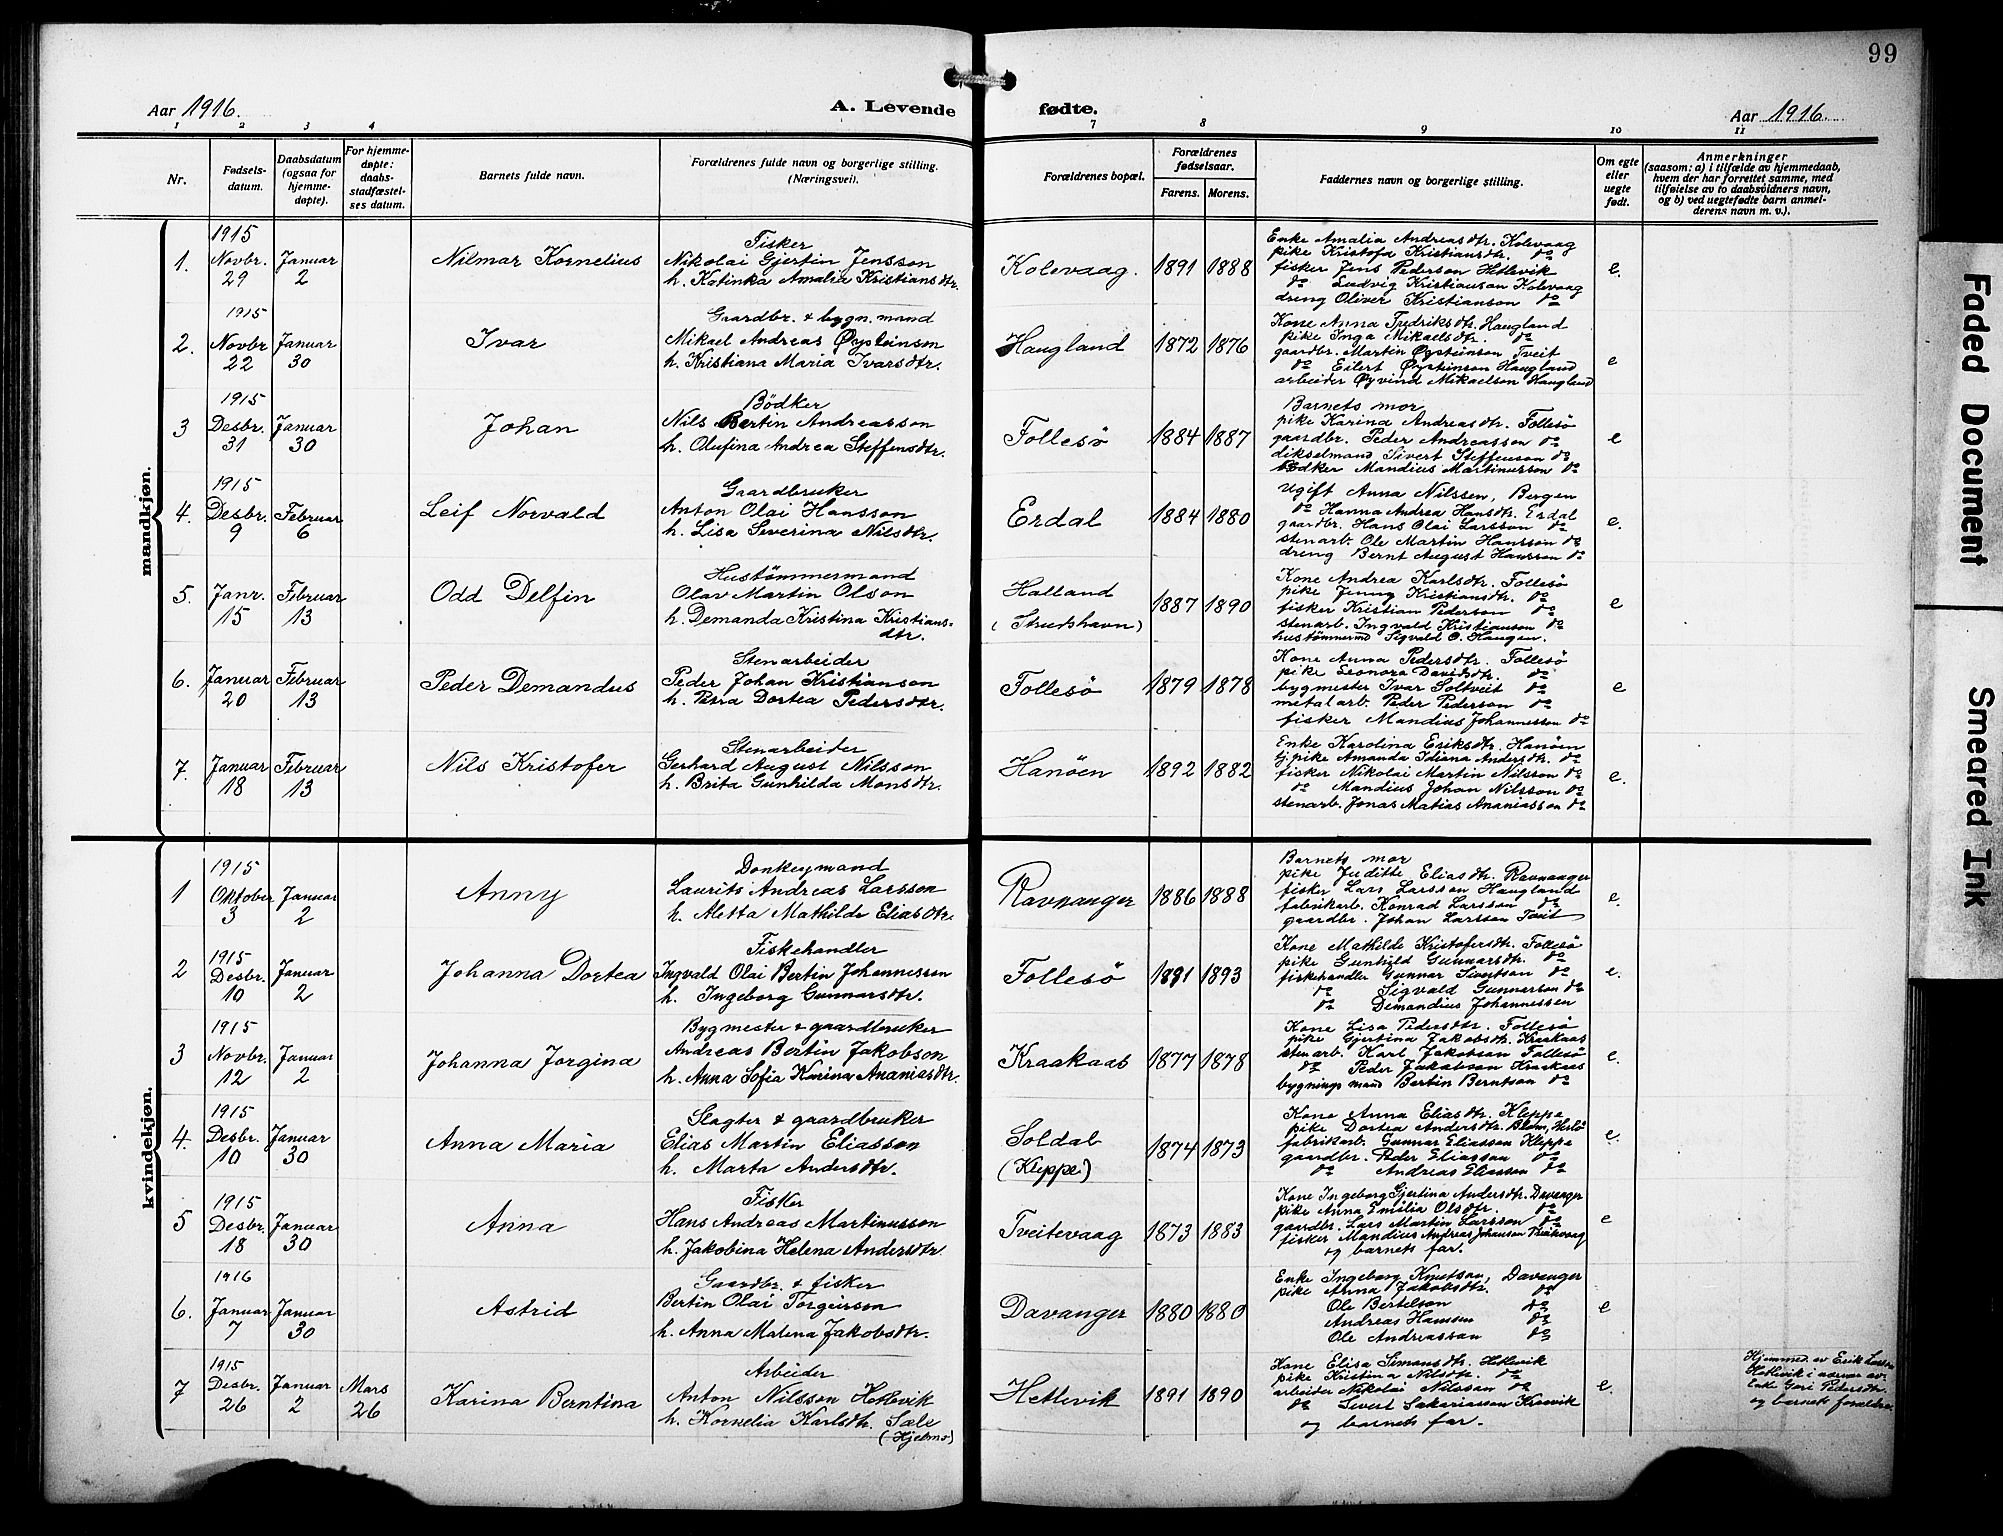 99
Aar 1916.
A. Levende fødte.
Aar 1916.
1 2 3 4 7 8 9 10 11
Nr.
Fødsels-
datum.
Daabsdatum
(ogsaa for
hjemme-
døpte).
For hjemme-
døpte:
daabs-
stadfæstel-
ses datum.
Barnets fulde navn.
Forældrenes fulde navn og borgerlige stilling.
(Næringsvei).
Forældrenes bopæl.
Forældrenes
fødselsaar.
Farens. Morens.
Faddernes navn og borgerlige stilling.
Om egte
eller
uegte
født.
Anmerkninger
(saasom: a) i tilfælde av hjemmedaab,
hvem der har forrettet samme, med
tilføielse av to daabsvidners navn,
og b) ved uegtefødte barn anmel-
derens navn m. v.).
mandkjøn.
1.
1915
Novbr.
29
Januar
2
Nilmar Kornelius
Fisker
Nikolai Gjertin Jensson
h. Katinka Amalia Kristiansdtr.
Kolevaag.
1891 1888
Enke Amalia Andreasdtr. Kolevaag
pike Kristofa Kristiansdtr. do
fisker Jens Pederson Hetlevik
do Ludvig Kristianson Kolevaag
dreng Oliver Kristianson do
e.
2.
1915
Novbr
22
Januar
30
Ivar
Gaardbr. & bygn. mand
Mikael Andreas Øysteinson
h. Kristiana Maria Ivarsdtr.
Haugland
1872 1876
Kone Anna Fredriksdtr. Haugland
pike Inga Mikaelsdtr. do
gaardbr. Martin Øysteinson Tveit
do Eilert Øysteinson Haugland
arbeider Øyvind Mikaelson Haugland
e
3
1915
Desbr.
31
Januar
30
Johan
Bödker
Nils Bertin Andreasson
h. Olufina Andrea Steffensdtr.
Follesö
1884 1887
Barnets mor
pike Karina Andreasdtr. Follesö
gaardbr. Peder Andreasson do
dikselmand Sivert Steffenson do
bödker Mandius Martinusson do
e
4.
1915
Desbr.
9
Februar
6
Leif Norvald
Gaardbruker
Anton Olai Hansson
h. Lisa Severina Nilsdtr.
Erdal
1884 1880
Ugift Anna Nilssen, Bergen
do Hanna Andrea Hansdtr. Erdal
gaardbr. Hans Olai Larsson do
stenarb. Ole Martin Hansson do
dreng Bernt August Hansson do
e.
5.
Janr.
15
Februar
13
Odd Delfin
Hustømmermand
Olav Martin Olson
h. Demanda Kristina Kristians-
dtr.
Halland
(Strudshavn)
1887 1890
Kone Andrea Karlsdtr. Follesö
pike Jenny Kristiansdtr. do
fisker Kristian Pederson do
stenarb. Ingvald Kristianson do
hustømmermd Sigvald O. Haugen.
e
6.
Januar
20
Februar
13
Peder Demandus
Stenarbeider
Peder Johan Kristianson
h. Petra Dortea Pedersdtr.
Follesö
1879 1878
Kone Anna Pedersdtr. Follesö
pike Leonora Davidsdtr. do
bygmester Ivar Soltveit do
metalarb. Peder Pederson do
fisker Mandius Johannesson do
e
7.
Januar
18
Februar
13
Nils Kristofer
Stenarbeider
Gerhard August Nilsson
h. Brita Gunhilda Monsdtr.
Hanöen
1892 1882
Enke Karolina Eriksdtr. Hanöen
tj.pike Amanda Idiana Andersdtr. do
fisker Nikolai Martin Nilsson do
do Mandius Johan Nilsson do
stenarb. Jonas Matias Ananiasson do
e.
kvindekjøn.
1
1915
Oktober
3
Januar
2
Anny
Donkeymand
Laurits Andreas Larsson
h. Aletta Mathilde Eliasdtr.
Ravnanger
1886 1888
Barnets mor
pike Juditte Eliasdtr. Ravnanger
fisker Lars Larsson Haugland
fabrikarb. Konrad Larsson do
gaardbr. Johan Larsson Tveit
e.
2
1915
Desbr.
10
Januar
2
Johanna Dortea
Fiskehandler
Ingvald Olai Bertin Johannesson
h. Ingeborg Gunnarsdtr.
Follesö
1891 1893
Kone Mathilde Kristofersdtr. Follesö
pike Gunhild Gunnarsdtr. do
fiskehandler Gunnar Sivertson do
do Sigvald Gunnarson do
do Demandius Johannessen
e.
3
1915
Novbr.
12
Januar
2
Johanna Jorgina
Bygmester & gaardbruker
Andreas Bertin Jakobson
h. Anna Sofia Karina Ananiasdtr.
Kraakaas
1877 1878
Kone Lisa Pedersdtr. Follesö
pike Gjertina Jakobsdtr. Kraakaas
stenarb. Karl Jakobson Follesö
do Peder Jakobson Kraakaas
bygningsmand Bertin Berntson do
e.
4.
1915
Desbr.
10
Januar
30
Anna Maria
Slagter & gaardbruker
Elias Martin Eliasson
h. Marta Andersdtr.
Soldal
(Kleppe)
1874 1873
Kone Anna Eliasdtr. Kleppe
pike Dortea Andersdtr. Blom, Herlö
fabrikarb. Gunnar Eliasson Kleppe
gaardbr. Peder Eliasson do
do Andreas Eliasson do
e.
5
1915
Desbr.
18
Januar
30
Anna
Fisker
Hans Andreas Martinusson
h. Jakobina Helena Andersdtr.
Tveitevaag
1873 1883
Kone Ingeborg Gjertina Andersdtr. Davanger
pike Anna Emilia Olsdtr. do
gaardbr. Lars Martin Larsson do
fisker Mandius Andreas Johanson Tveitevaag
og barnets far.
e
6.
1916
Januar
7
Januar
30
Astrid
Gaardbr. & fisker
Bertin Olai Torgeirson
h. Anna Malena Jakobsdtr.
Davanger
1880 1880
Enke Ingeborg Knutson, Davanger
pike Anna Jakobsdtr. do
Ole Bertelson do
Andreas Hansen do
Ole Andreassan do
e
7
1915
Desbr.
26
Januar
2
Mars
26
Karina Berntina
Arbeider
Anton Nilsson Hetlevik
h. Kornelia Karlsdtr. Sæle
(Hjelmø)
Hetlevik
1891 1890
Kone Elisa Simonsdtr. Hetlevik
pike Kristina Nilsdtr. do
arbeider Nikolai Nilsson do
do Sivert Sakariasson
og barnets far.
e.
Hjemmed. av Erik Larsson
Hetlevik i nærvær av
Enke Gori Pedersdtr.
og barnets forældre
Faded Document
Smeared Ink